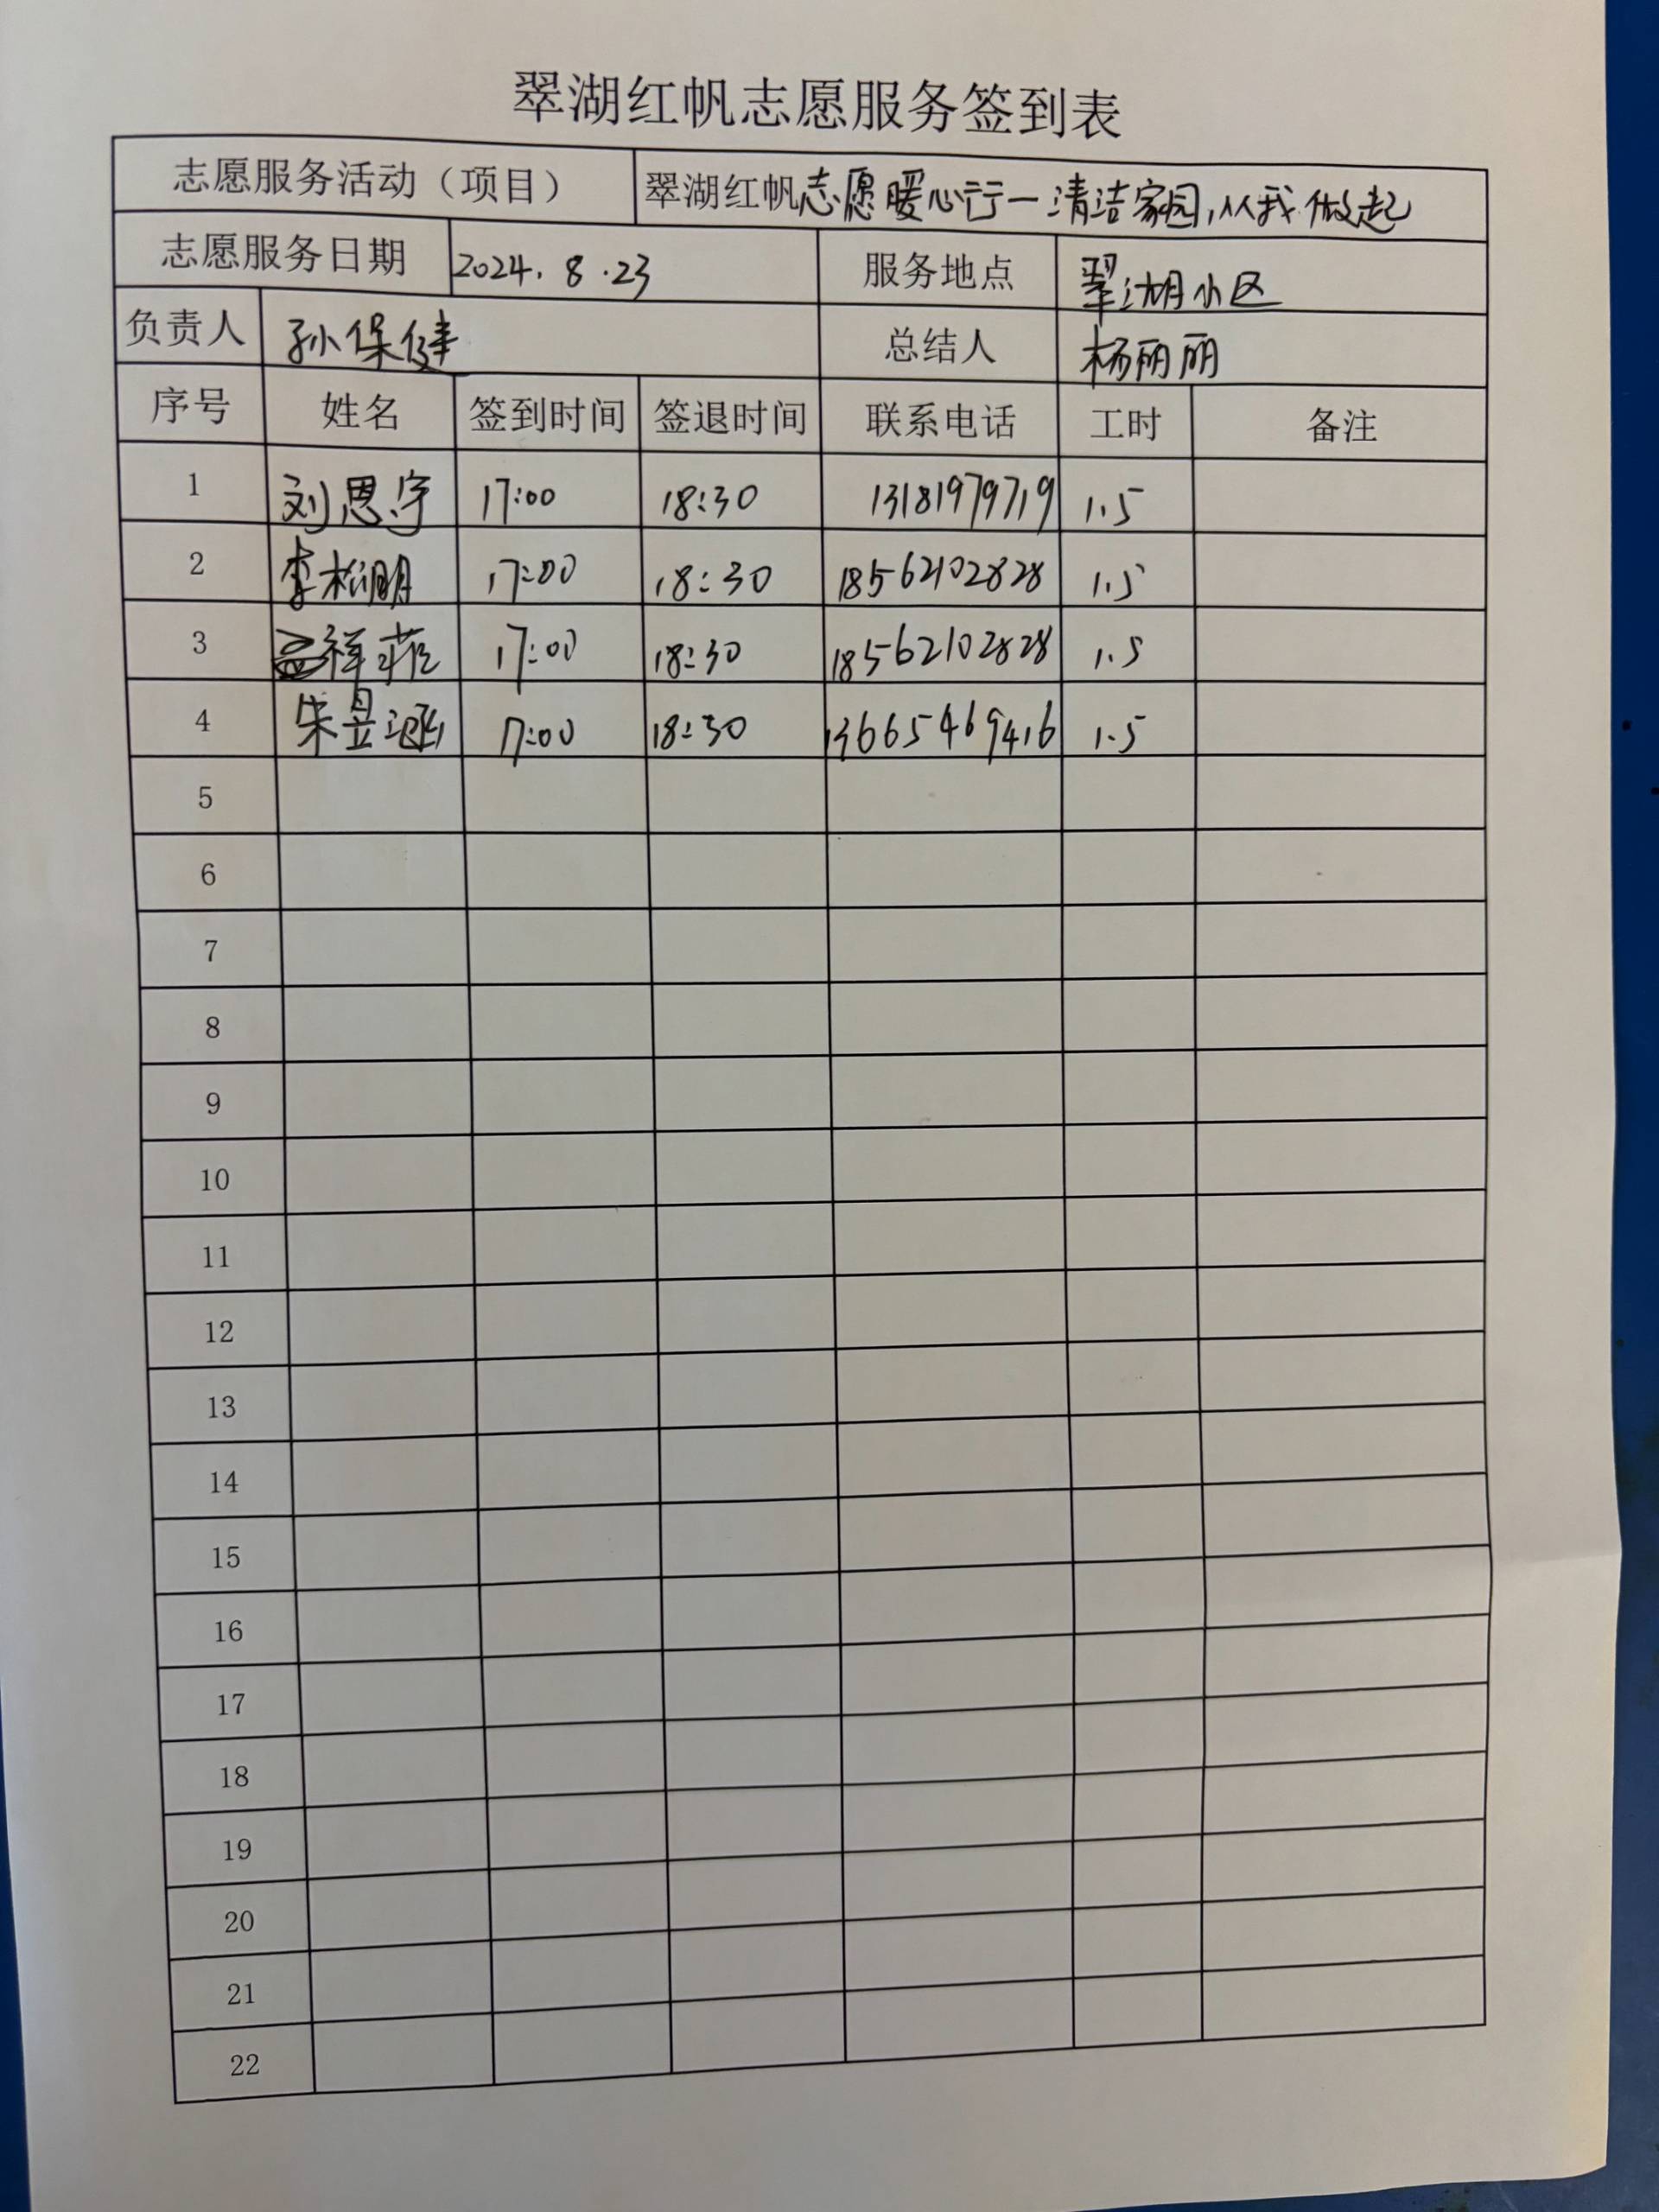 翠湖红帆志愿服务签到表
志愿服务活动（项目） 翠湖红帆志愿暖心行一清洁家园,从我做起
志愿服务日期 2024.8.23 服务地点 翠湖小区
负责人 孙保健 总结人 杨丽丽
序号 姓名 签到时间 签退时间 联系电话 工时 备注
1 刘恩宇 17:00 18:30 13181979719 1.5
2 李松明 17:00 18:30 18562102828 1.5
3 祥菲 17:00 18:30 18562102828 1.5
4 朱昱涵 17:00 18:30 13665469416 1.5
5
6
7
8
9
10
11
12
13
14
15
16
17
18
19
20
21
22